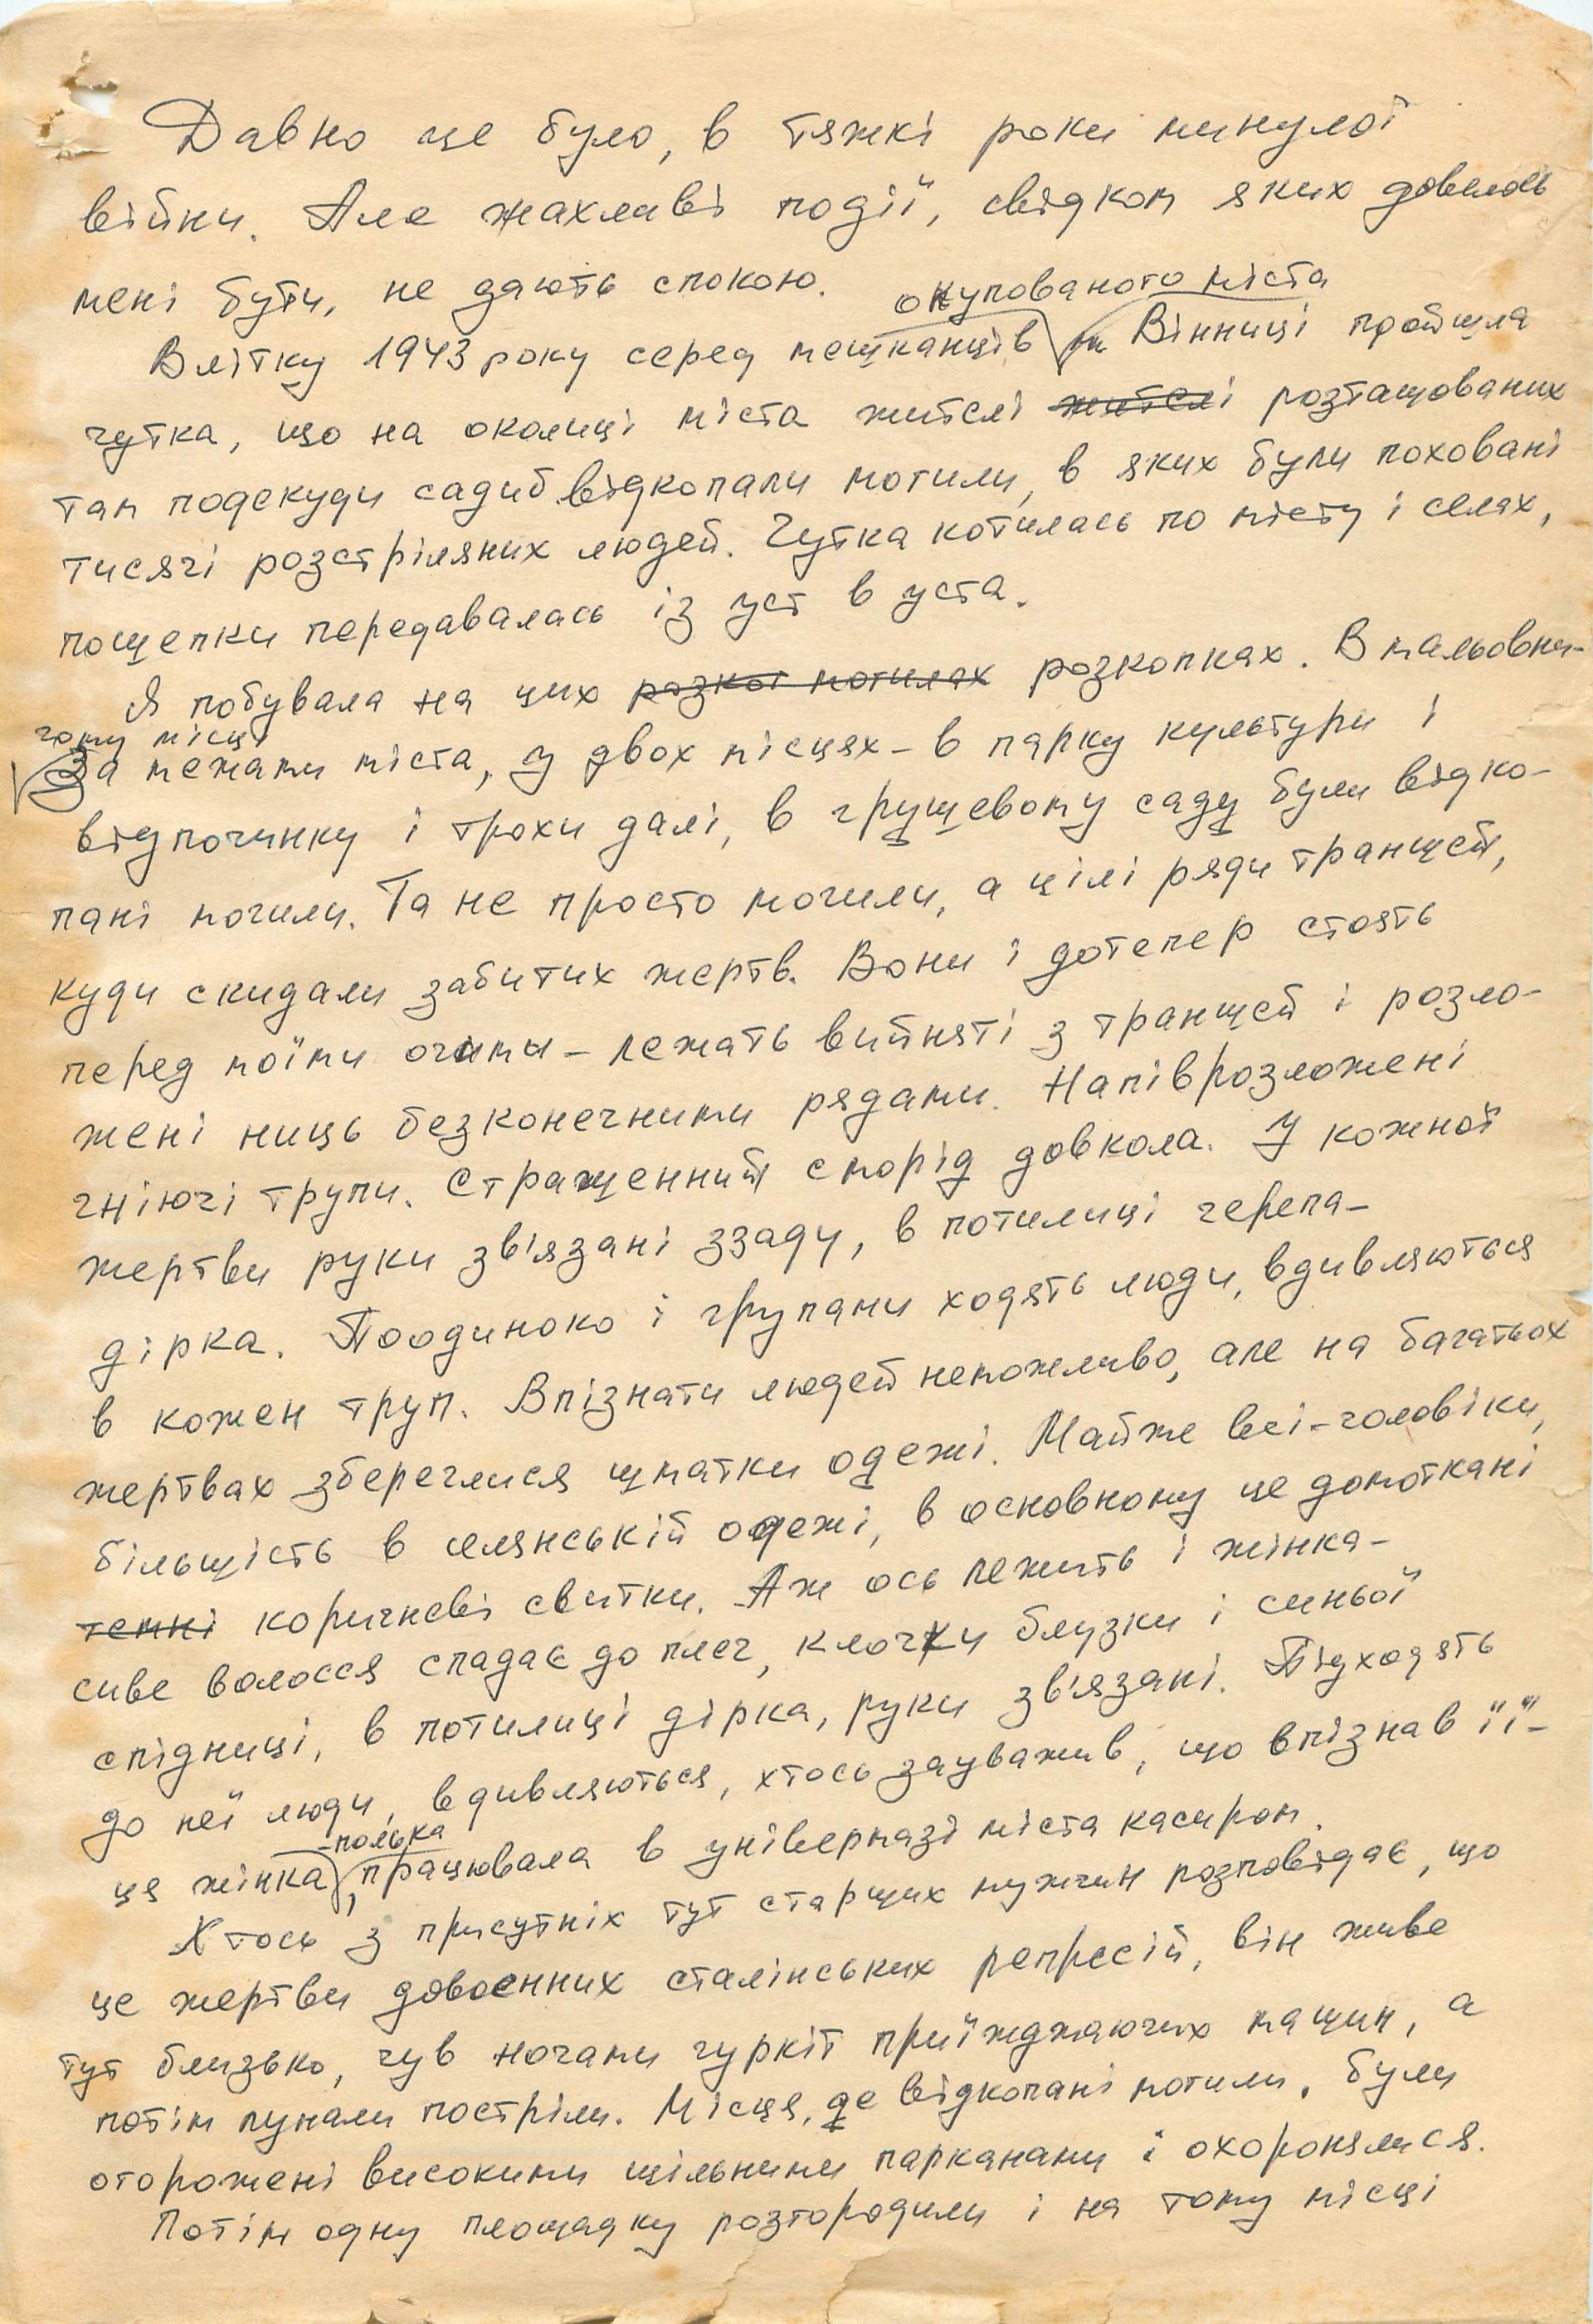 Давно це було, в тяжкі роки минулої
війни. Але жахливі події, свідком яких довелось
мені бути, не дають спокою.
окупованого міста
Влітку 1943 року серед мешканців м. Вінниці пройшла
чутка, що на околиці міста жителі жителі розташованих
там подекуди садиб відкопали могили, в яких були поховані
тисячі розстріляних людей. Чутка котилась по місту і селах,
пошепки передавалась із уст в уста.
Я побувала на цих розкоп могилах розкопках. В мальовни-
чому місці
За межами міста, у двох місцях – в парку культури і
відпочинку і трохи далі, в грушевому саду були відко-
пані могили. Та не просто могили, а цілі ряди траншей,
куди скидали забитих жертв. Вони і дотепер стоять
перед моїми очима – лежать вийняті з траншей і розло-
жені ниць безконечними рядами. Напіврозложені
гніючі трупи. Страшенний сморід довкола. У кожної
жертви руки зв'язані ззаду, в потилиці черепа –
дірка. Поодиноко і групами ходять люди, вдивляються
в кожен труп. Впізнати людей неможливо, але на багатьох
жертвах збереглися шматки одежі. Майже всі – чоловіки,
більшість в селянській одежі, в основному це домоткані
темні коричневі свитки. Аж ось лежить і жінка –
сиве волосся спадає до плеч, клочки блузки і синьої
спідниці, в потилиці дірка, руки зв'язані. Підходять
до неї люди, вдивляються, хтось зауважив, що впізнав її –
– полька
ця жінка, працювала в універмазі міста касиром.
Хтось з присутніх тут старших мужчин розповідає, що
це жертви довоєнних сталінських репресій, він живе
тут близько, чув ночами гуркіт приїжджаючих машин, а
потім лунали постріли. Місця, де відкопані могили, були
огорожені високими щільними парканами і охоронялися.
Потім одну площадку розгородили і на тому місці